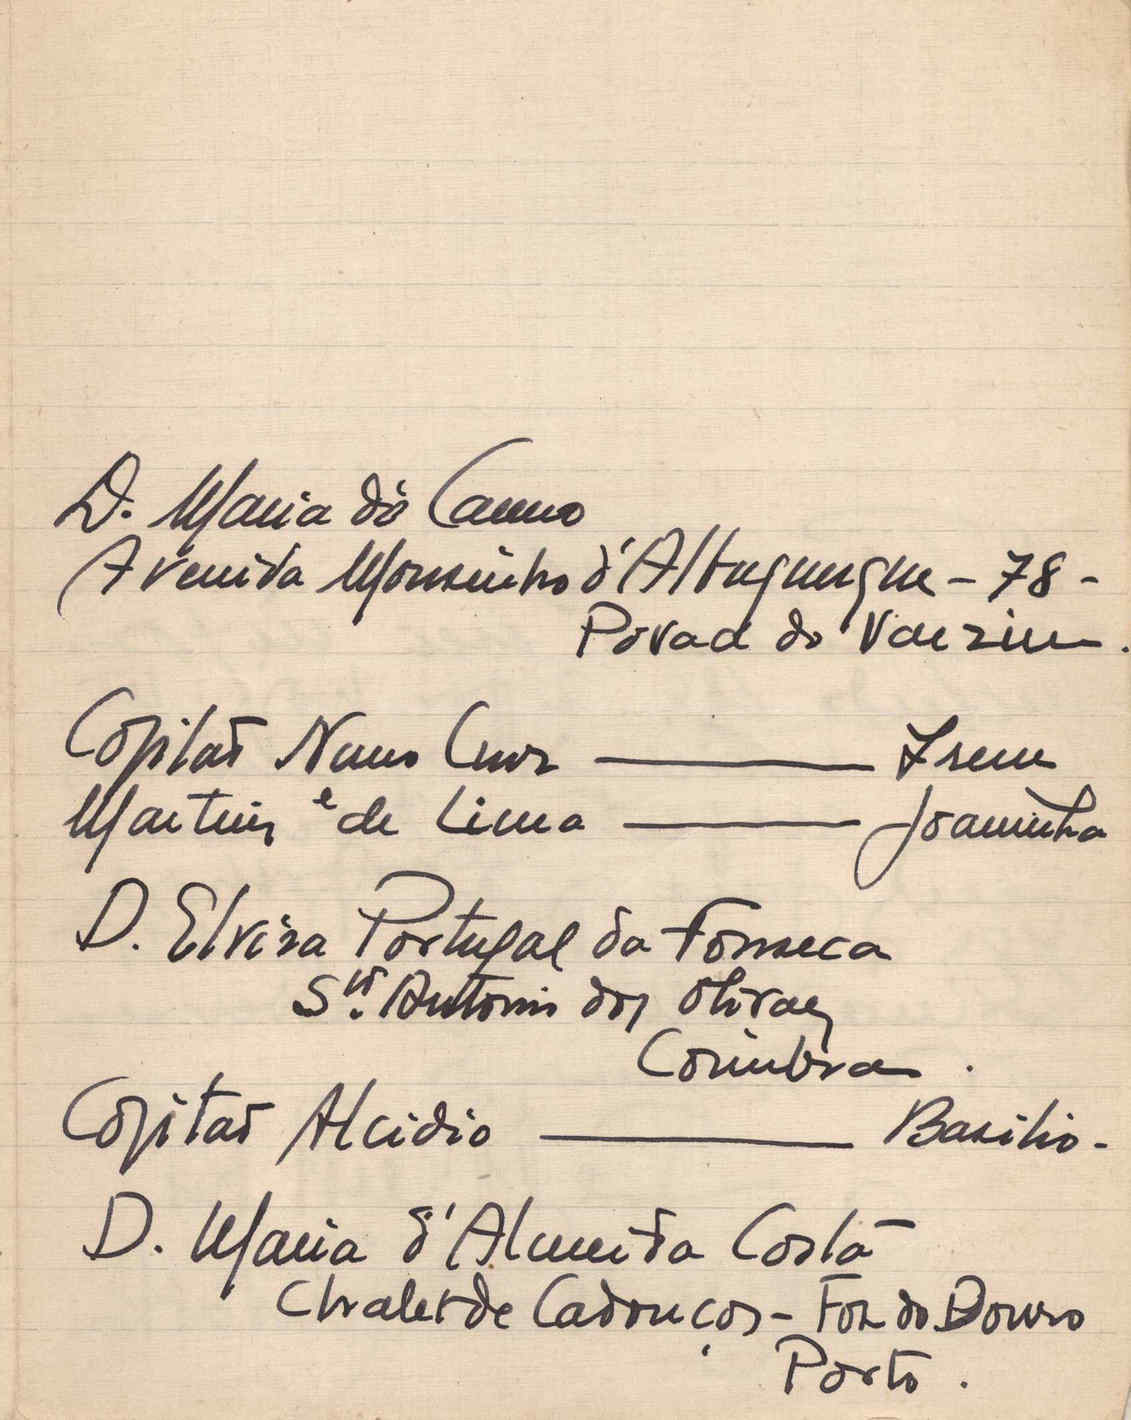 D. Maria do Carmo
Avenida Mousinho d'Albuquerque – 78 –
Povoa do Varzim.
Capitão Nuno Cruz ——— Irene
Martins e de Lima ——— Joaninha
D. Elvira Portugal da Fonseca
Stº. Antonio dos Olivaes
Coimbra.
Capitão Alcidio ——— Basilio -
D. Maria d'Almeida Costa
Chalet de Cadouços – Foz do Douro
Porto.